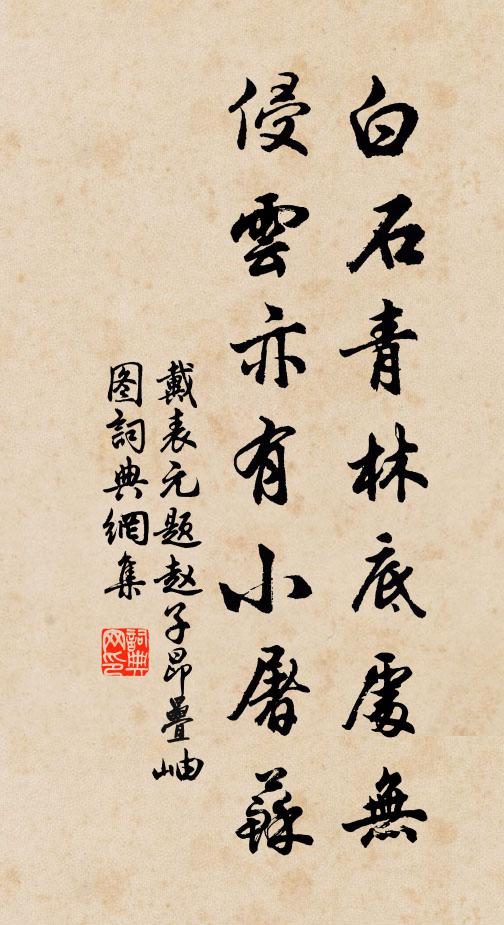 白石青林底處無
侵雲亦有小屠蘇
戴表元题赵子昂疊岫
图詞典網集
詞典网印